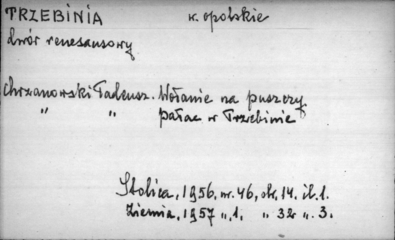 TRZEBINIA w. opolskie
dwór renesansowy
Chrzanowski Tadeusz. Wołanie na puszczy.
" " pałac w Trzebinie
Stolica, 1956. nr. 46, str. 14. il. 1.
Ziemia, 1957 „ 1. „ 32 „. 3.